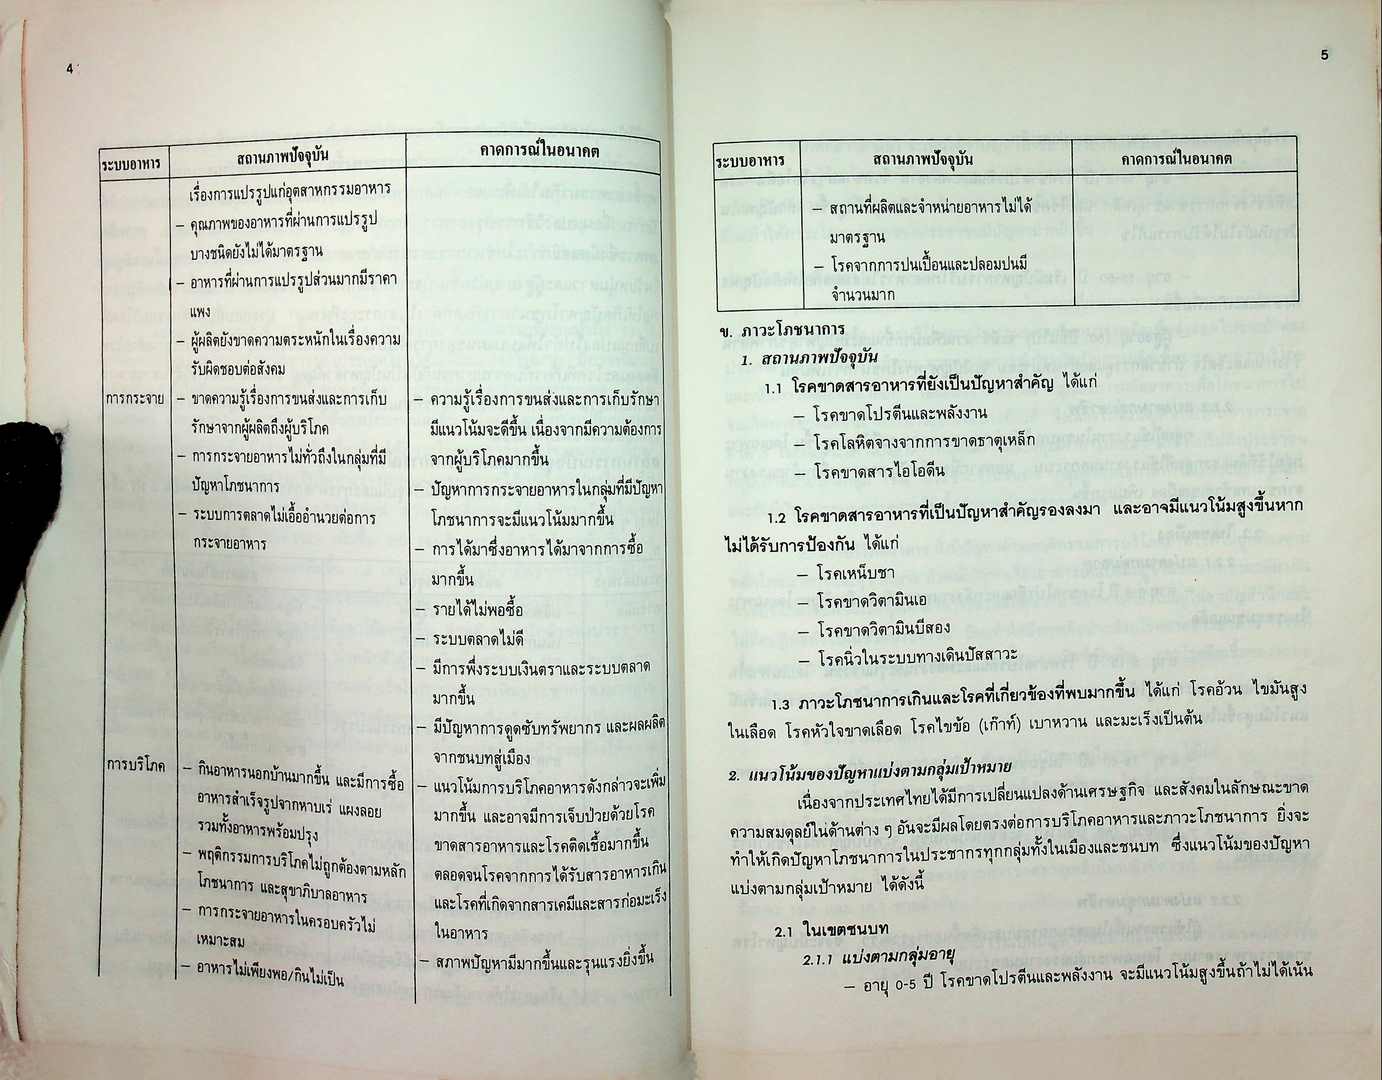 4
ระบบอาหาร
สถานภาพปัจจุบัน
คาดการณ์ในอนาคต
เรื่องการแปรรูปแก่อุตสาหกรรมอาหาร
– คุณภาพของอาหารที่ผ่านการแปรรูป
บางชนิดยังไม่ได้มาตรฐาน
– อาหารที่ผ่านการแปรรูปส่วนมากมีราคา
แพง
– ผู้ผลิตยังขาดความตระหนักในเรื่องความ
รับผิดชอบต่อสังคม
การกระจาย
– ขาดความรู้เรื่องการขนส่งและการเก็บ
รักษาจากผู้ผลิตถึงผู้บริโภค
– การกระจายอาหารไม่ทั่วถึงในกลุ่มที่มี
ปัญหาโภชนาการ
– ระบบการตลาดไม่เอื้ออำนวยต่อการ
กระจายอาหาร
– ความรู้เรื่องการขนส่งและการเก็บรักษา
มีแนวโน้มจะดีขึ้น เนื่องจากมีความต้องการ
จากผู้บริโภคมากขึ้น
– ปัญหาการกระจายอาหารในกลุ่มที่มีปัญหา
โภชนาการจะมีแนวโน้มมากขึ้น
– การได้มาซึ่งอาหารได้มาจากการซื้อ
มากขึ้น
– รายได้ไม่พอซื้อ
– ระบบตลาดไม่ดี
– มีการพึ่งระบบเงินตราและระบบตลาด
มากขึ้น
– มีปัญหาการดูดซับทรัพยากร และผลผลิต
จากชนบทสู่เมือง
การบริโภค
– กินอาหารนอกบ้านมากขึ้น และมีการซื้อ
อาหารสำเร็จรูปจากหาบเร่ แผงลอย
รวมทั้งอาหารพร้อมปรุง
– พฤติกรรมการบริโภคไม่ถูกต้องตามหลัก
โภชนาการ และสุขาภิบาลอาหาร
– การกระจายอาหารในครอบครัวไม่
เหมาะสม
– อาหารไม่เพียงพอ/กินไม่เป็น
– แนวโน้มการบริโภคอาหารดังกล่าวจะเพิ่ม
มากขึ้น และอาจมีการเจ็บป่วยด้วยโรค
ขาดสารอาหารและโรคติดเชื้อมากขึ้น
ตลอดจนโรคจากการได้รับสารอาหารเกิน
และโรคที่เกิดจากสารเคมีและสารก่อมะเร็ง
ในอาหาร
– สภาพปัญหามีมากขึ้นและรุนแรงยิ่งขึ้น
5
ระบบอาหาร
สถานภาพปัจจุบัน
คาดการณ์ในอนาคต
– สถานที่ผลิตและจำหน่ายอาหารไม่ได้
มาตรฐาน
– โรคจากการปนเปื้อนและปลอมปนมี
จำนวนมาก
ข. ภาวะโภชนาการ
1. สถานภาพปัจจุบัน
1.1 โรคขาดสารอาหารที่ยังเป็นปัญหาสำคัญ ได้แก่
– โรคขาดโปรตีนและพลังงาน
– โรคโลหิตจางจากการขาดธาตุเหล็ก
– โรคขาดสารไอโอดีน
1.2 โรคขาดสารอาหารที่เป็นปัญหาสำคัญรองลงมา และอาจมีแนวโน้มสูงขึ้นหาก
ไม่ได้รับการป้องกัน ได้แก่
– โรคเหน็บชา
– โรคขาดวิตามินเอ
– โรคขาดวิตามินบีสอง
– โรคนิ่วในระบบทางเดินปัสสาวะ
1.3 ภาวะโภชนาการเกินและโรคที่เกี่ยวข้องที่พบมากขึ้น ได้แก่ โรคอ้วน ไขมันสูง
ในเลือด โรคหัวใจขาดเลือด โรคไขข้อ (เก๊าท์) เบาหวาน และมะเร็งเป็นต้น
2. แนวโน้มของปัญหาแบ่งตามกลุ่มเป้าหมาย
เนื่องจากประเทศไทยได้มีการเปลี่ยนแปลงด้านเศรษฐกิจ และสังคมในลักษณะขาด
ความสมดุลย์ในด้านต่าง ๆ อันจะมีผลโดยตรงต่อการบริโภคอาหารและภาวะโภชนาการ ยิ่งจะ
ทำให้เกิดปัญหาโภชนาการในประชากรทุกกลุ่มทั้งในเมืองและชนบท ซึ่งแนวโน้มของปัญหา
แบ่งตามกลุ่มเป้าหมาย ได้ดังนี้
2.1 ในเขตชนบท
2.1.1 แบ่งตามกลุ่มอายุ
– อายุ 0-5 ปี โรคขาดโปรตีนและพลังงาน จะมีแนวโน้มสูงขึ้นถ้าไม่ได้เน้น